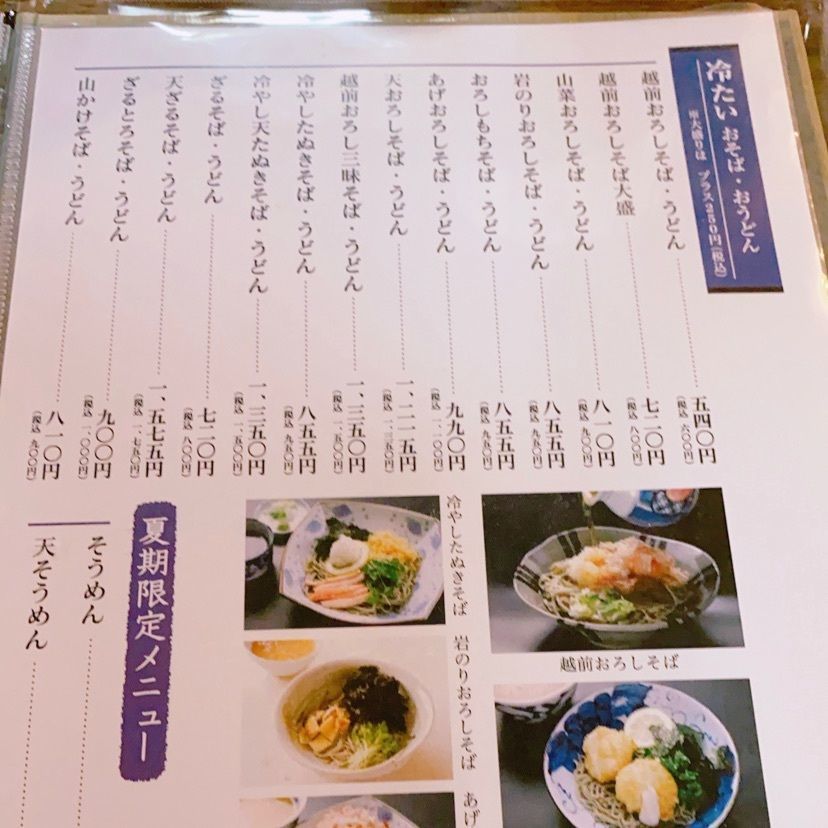 冷たい おそば・おうどん
※大盛りは プラス250円(税込)
越前おろしそば・うどん 五四〇円
(税込 六〇〇円)
越前おろしそば大盛 七二〇円
(税込 八〇〇円)
山菜おろしそば・うどん 八一〇円
(税込 九〇〇円)
岩のりおろしそば・うどん 八五五円
(税込 九五〇円)
おろしもちそば・うどん 八五五円
(税込 九五〇円)
あげおろしそば・うどん 九九〇円
(税込 一、一〇〇円)
天おろしそば・うどん 一、二一五円
(税込 一、三五〇円)
越前おろし三昧そば・うどん 一、三五〇円
(税込 一、五〇〇円)
冷やしたぬきそば・うどん 八五五円
(税込 九五〇円)
冷やし天たぬきそば・うどん 一、三五〇円
(税込 一、五〇〇円)
ざるそば・うどん 七二〇円
(税込 八〇〇円)
天ざるそば・うどん 一、五七五円
(税込 一、七五〇円)
ざるとろそば・うどん 九〇〇円
(税込 一、〇〇〇円)
山かけそば・うどん 八一〇円
(税込 九〇〇円)
夏期限定メニュー
そうめん
天そうめん
越前おろしそば
冷やしたぬきそば
岩のりおろしそば
あげ